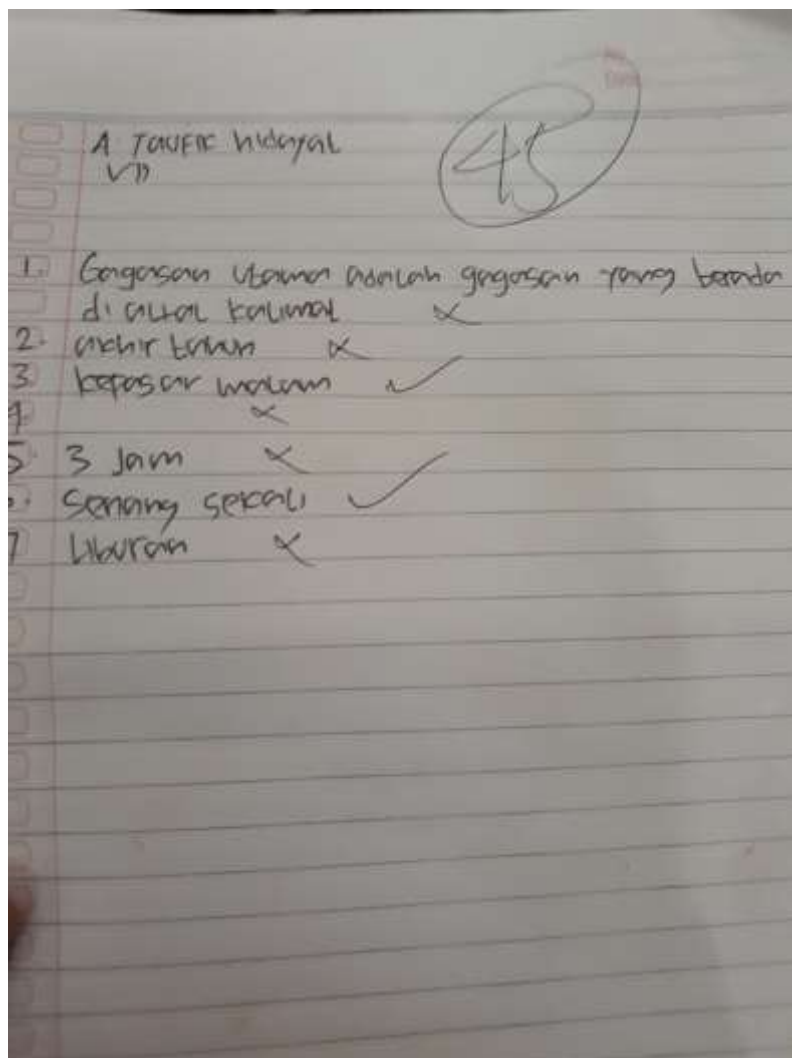 A TAUFIK hidayat
VD
45
1. Gagasan utama adalah gagasan yang berada
di awal kalimat ×
2. akhir tahun ×
3 kepasar malam ✓
4 ×
5. 3 Jam ×
6. Senang sekali ✓
7 Liburan ×